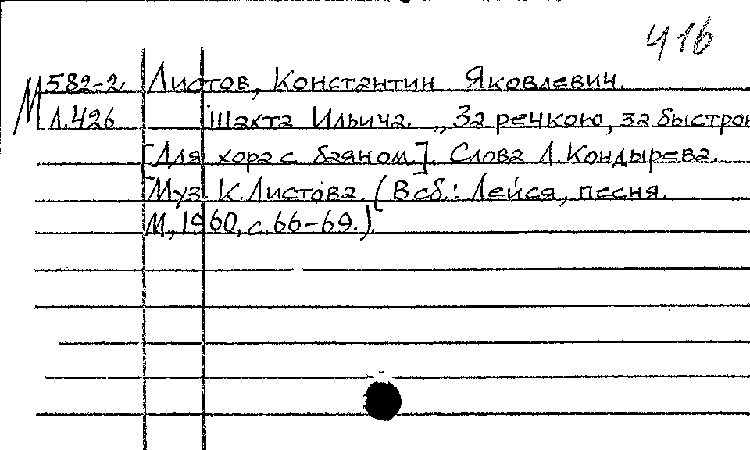 416
М 582-2. Листов, Константин Яковлевич.
Л.426 Шахта Ильича. „За речкою, за быстрою
[Для хора с баяном]. Слова Л. Кондырева.
Муз. К. Листова. (В сб.: Лейся, песня.
М., 1960, с. 66-69.)